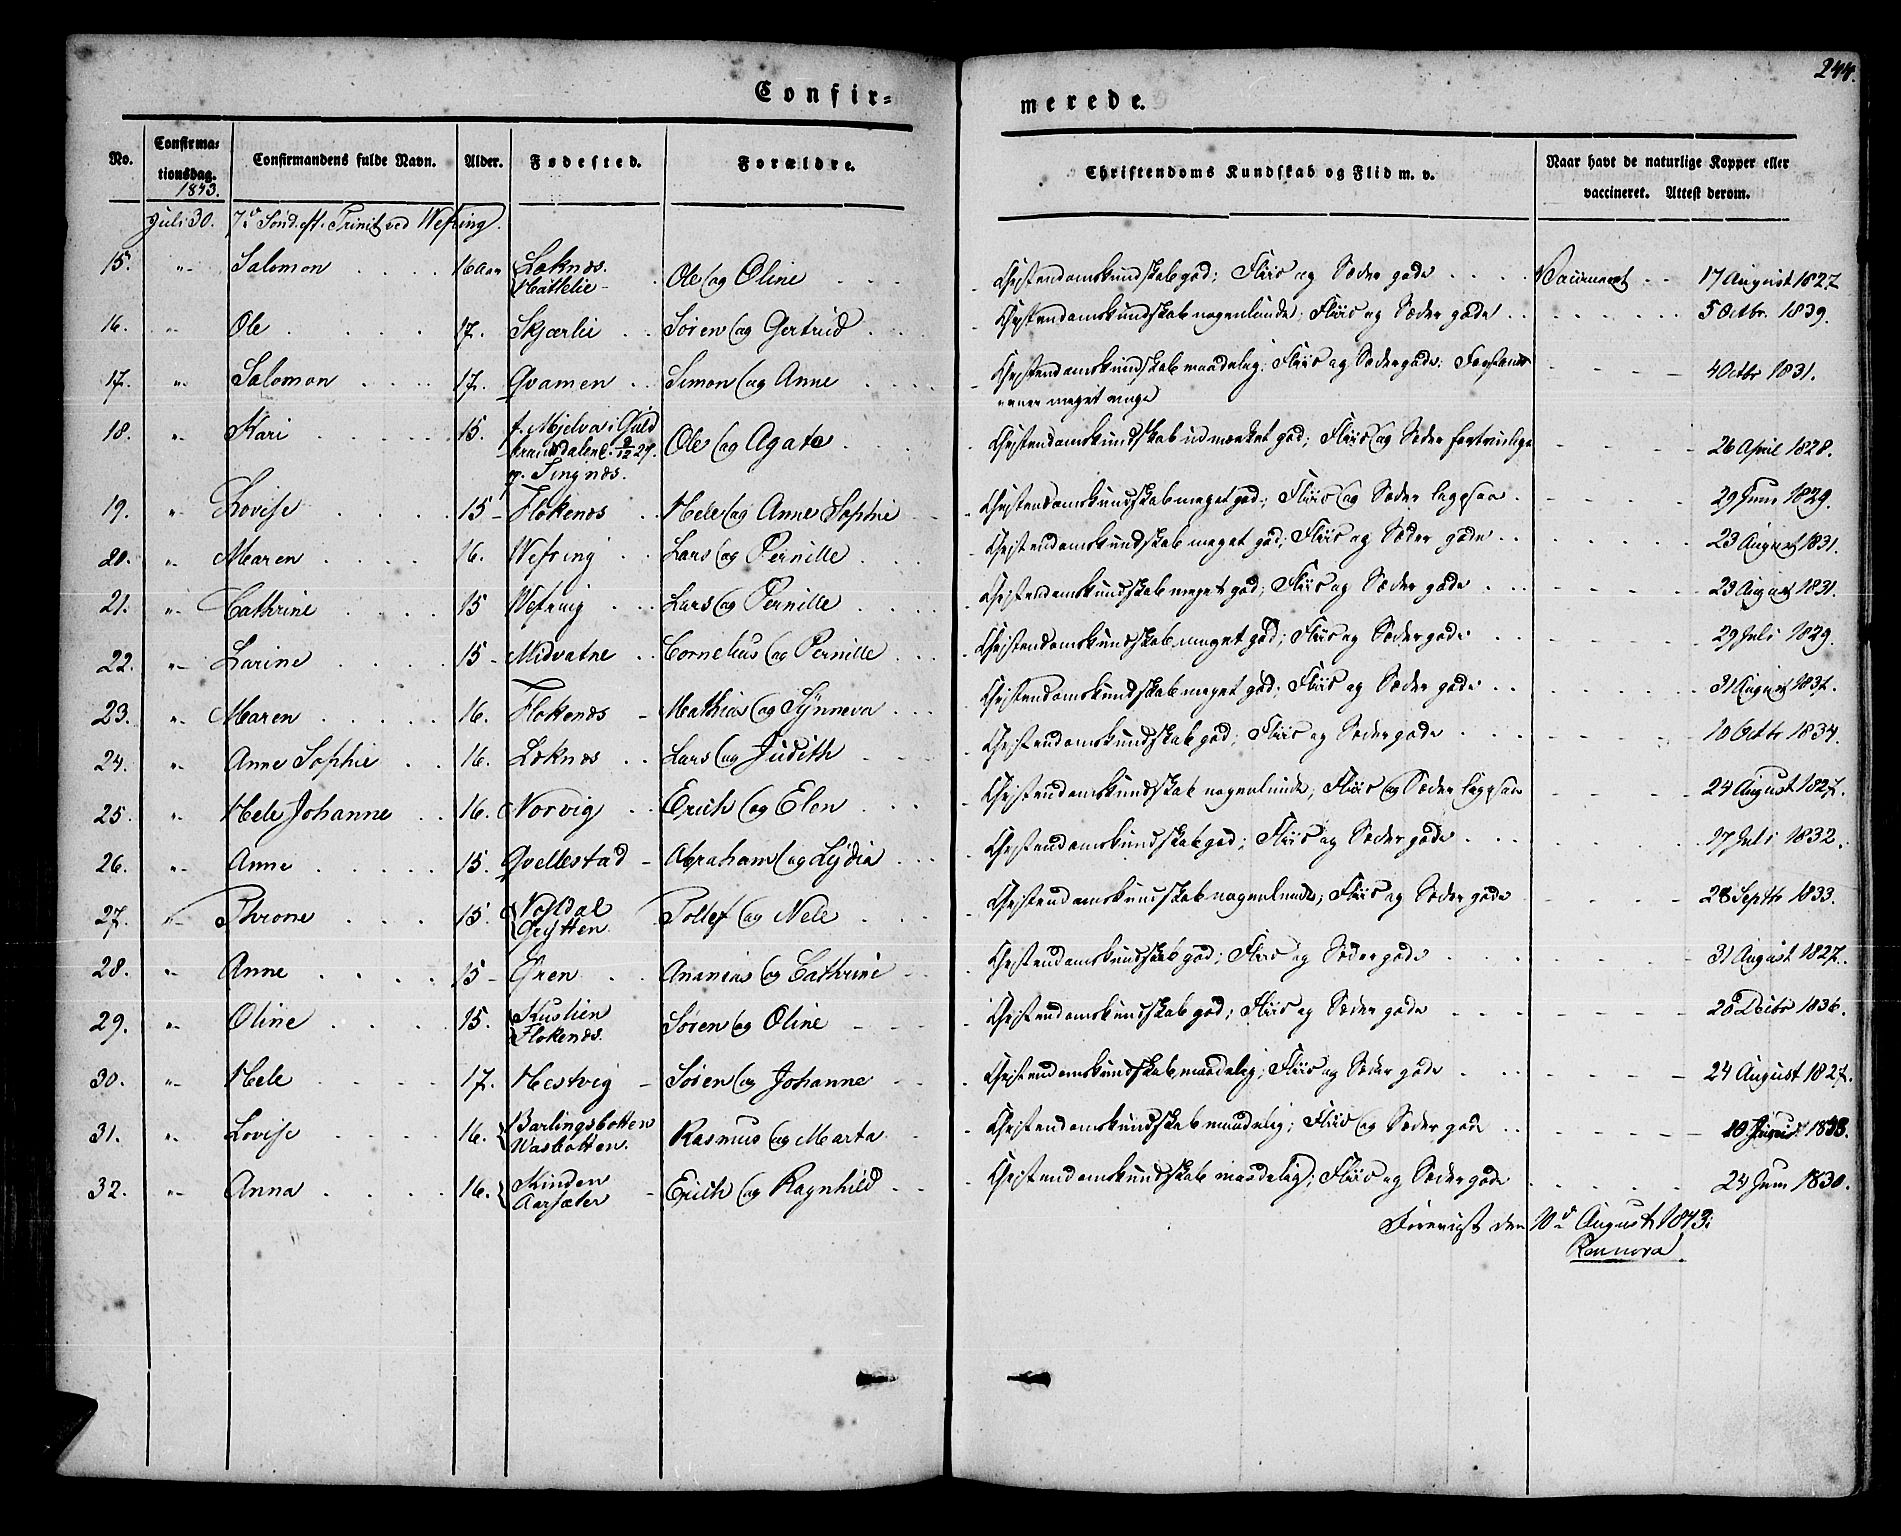 244.
Confir-
merede.
No.
Confirma-
tionsdag.
1843.
Confirmandens fulde Navn.
Alder.
Fødested.
Forældre.
Christendoms Kundskab og Flid m. v.
Naar havt de naturlige Kopper eller
vaccineret. Attest derom.
Juli 30. 7de Sønd. eft. Trinit ved Wefring.
15. " Salomon 16 Aar Løknæs. Hattelie Ole og Oline Christendomskundskab god; Fliid og Sæder gode Vaccineret 17 August 1827
16. " Ole 17. Skjærlie Søren og Gertrud Christendomskundskab nogenlunde; Fliid og Sæder gode 5 Octbr. 1839.
17. " Salomon 17. Qvamen Simon og Anne Christendomskundskab maadelig; Fliid og Sæder gode. Forstands-
evner meget ringe 4 Octbr 1831.
18. " Kari 15. f. Mjelva i Guld
brandsdalene 9/12 27.
Tingnæs. Ole og Agate Christendomskundskab udmærket god; Fliid og Sæder fortrinlige 26 April 1828.
19. " Lovise 15 Flokenæs Hele og Anne Sophie Christendomskundskab meget god; Fliid og Sæder ligesaa 29 Juni 1829.
20. " Maren 16. Wefring Lars og Pernille Christendomskundskab meget god; Fliid og Sæder gode 23 August 1831.
21. " Cathrine 15 Wefring Lars og Pernille Christendomskundskab meget god; Fliid og Sæder gode 23 August 1831.
22. " Larine 15 Midvatne Cornelius og Pernille Christendomskundskab meget god; Fliid og Sæder gode 29 Juli 1829.
23. " Maren 16. Flokenæs Mathias og Synneva Christendomskundskab meget god; Fliid og Sæder gode 31 August 1832.
24. " Anne Sophie 16. Løknæs Lars og Judith Christendomskundskab god; Fliid og Sæder gode 10 Octbr 1834.
25. " Hele Johanne 16. Norvig Erich og Elen Christendomskundskab nogenlunde; Fliid og Sæder ligesaa 24 August 1827.
26. " Anne 15. Qvellestad Abraham og Lydia Christendomskundskab god; Fliid og Sæder gode 17 Juli 1832.
27. " Throne 15. Vossdal
Grytten Tollef og Nele Christendomskundskab nogenlunde; Fliid og Sæder gode 28 Septbr 1833.
28. " Anne 15 Øren Ananias og Cathrine Christendomskundskab god; Fliid og Sæder gode 31 August 1827.
29. " Oline 15. Kustien
Flokenæs. Søren og Oline Christendomskundskab god; Fliid og Sæder gode 28 Decbr 1836.
30. " Hele 17. Hestvig Søren og Johanne Christendomskundskab maadelig; Fliid og Sæder gode 24 August 1827.
31. " Lovise 16. Barlingsbotten
Wasbotten. Rasmus og Marta Christendomskundskab maadelig; Fliid og Sæder gode 10 August 1833.
32. " Anna 16. Kinden
Aarsæter Erich og Ragnhild Christendomskundskab maadelig; Fliid og Sæder gode 24 Juni 1830.
den 10de August 1843: